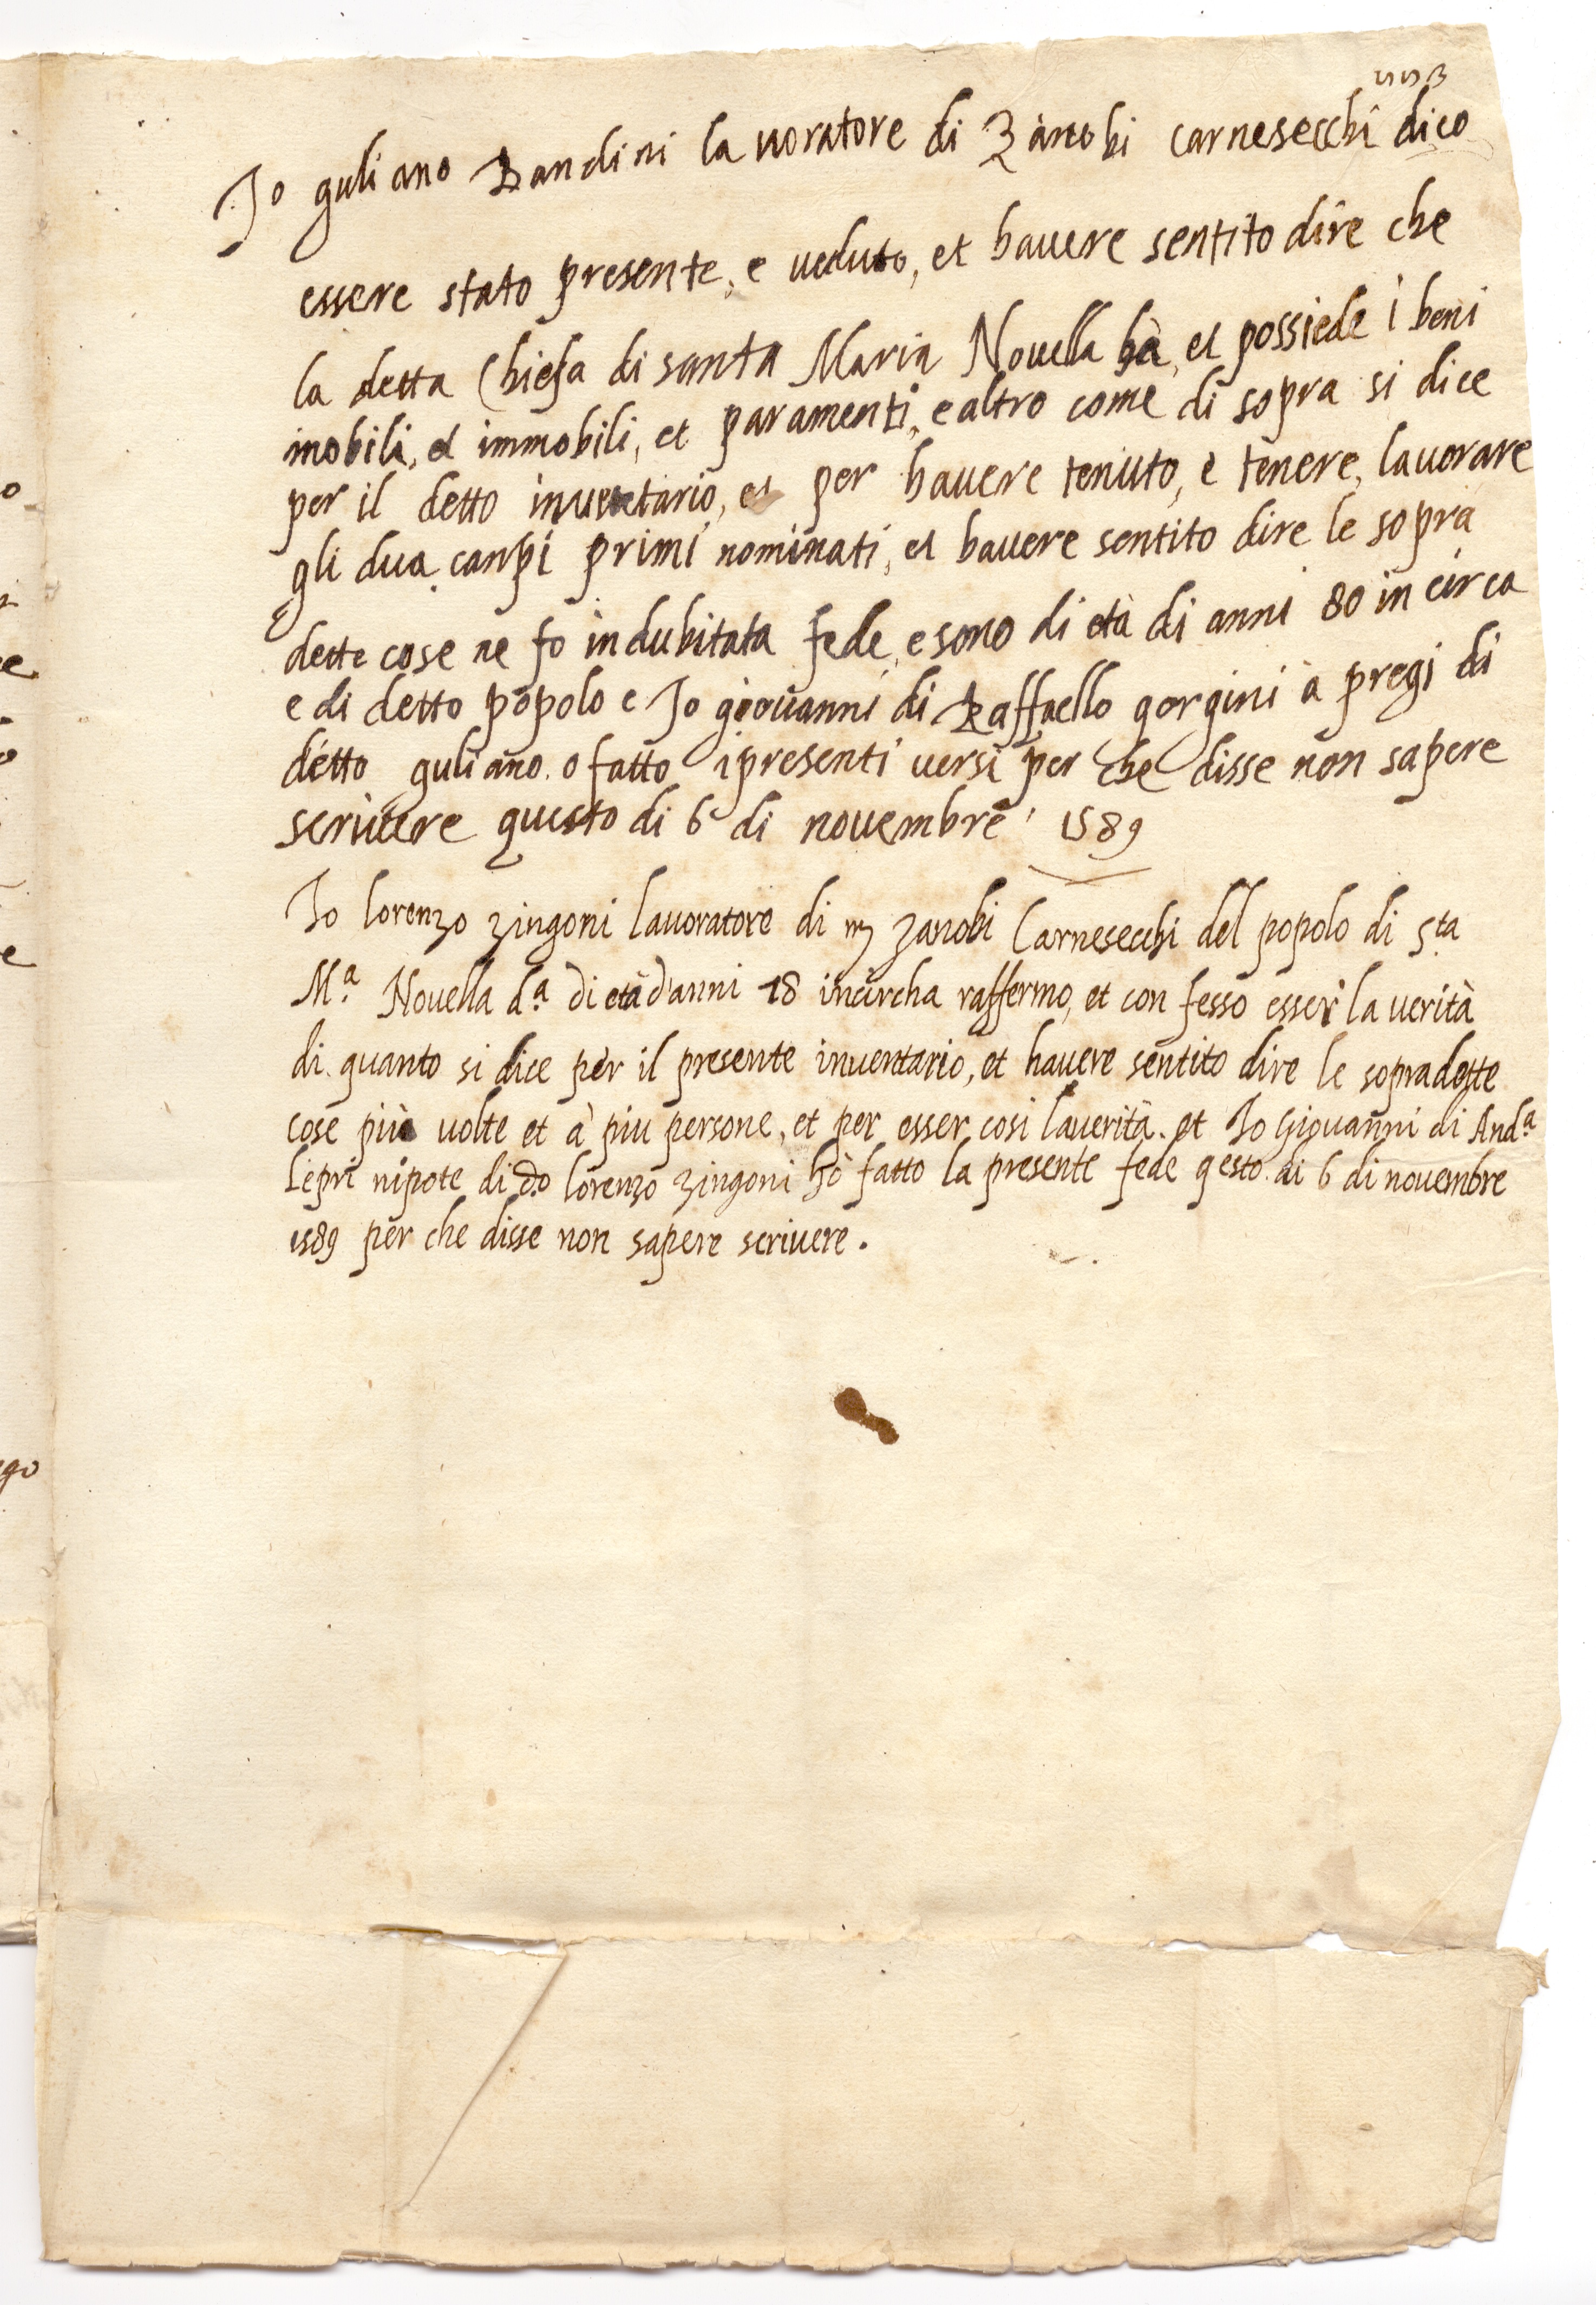 Io guliano Bandini lavoratore di Zanobi carnesecchi dico
essere stato presente, e veduto, et havere sentito dire che
la detta Chiesa di santa Maria Novella hà, et possiede i beni
mobili, et immobili, et paramenti, e altro come di sopra si dice
per il detto inventario, et per havere tenuto, e tenere, lavorare
gli dua canpi primi nominati, et havere sentito dire le sopra
dette cose ne fo indubitata fede, e sono di età di anni 80 in circa
e di detto popolo e Io giovanni di Raffaello gorgini à pregi di
detto guliano o fatto i presenti versi per che disse non sapere
scrivere questo di 6 di novembre 1589
Io lorenzo zingoni lavoratore di m zanobi Carnesecchi del popolo di Sta
M.a Novella d.a di età d'anni 78 incircha raffermo, et con fesso esser la verità
di quanto si dice per il presente inventario, et havere sentito dire le sopradette
cose più volte et à piu persone, et per esser cosi la verità. et Io Giovanni di And.a
Lepri nipote di do lorenzo zingoni hò fatto la presente fede qesto di 6 di novembre
1589 per che disse non sapere scrivere.